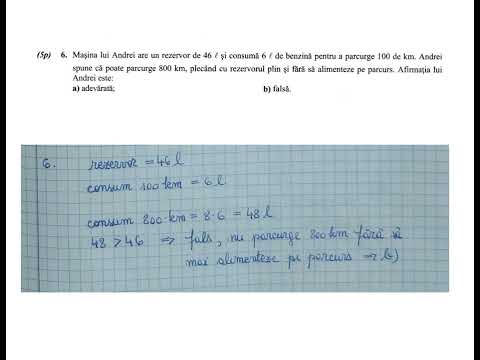 (5p) 6. Mașina lui Andrei are un rezervor de 46 ℓ și consumă 6 ℓ de benzină pentru a parcurge 100 de km. Andrei
spune că poate parcurge 800 km, plecând cu rezervorul plin și fără să alimenteze pe parcurs. Afirmația lui
Andrei este:
a) adevărată; b) falsă.
6. rezervor = 46 l
consum 100 km = 6 l
consum 800 km = 8·6 = 48 l
48 > 46 ⇒ fals, nu parcurge 800 km fără să
mai alimenteze pe parcurs ⇒ b)